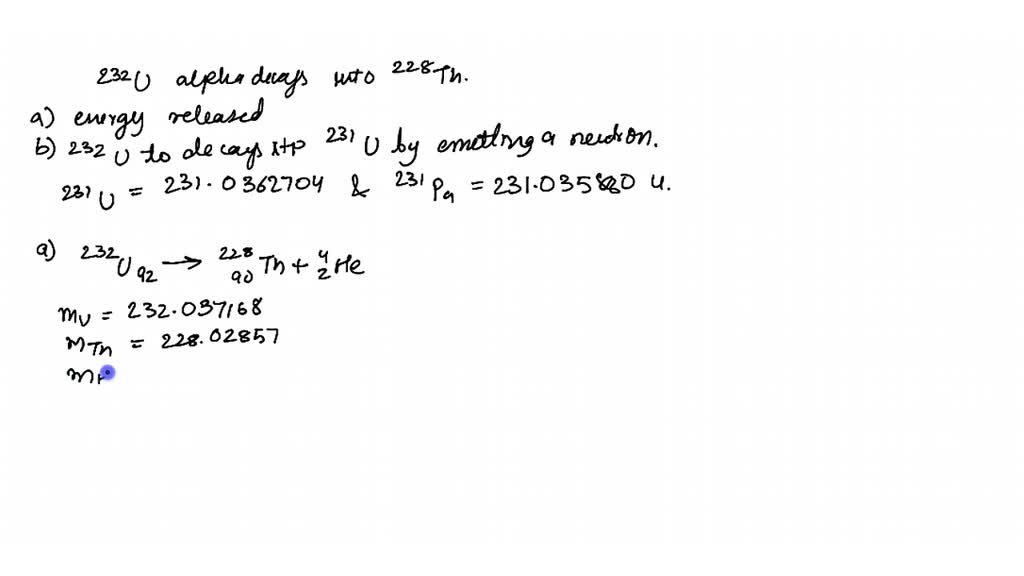 ²³²U alpha decays into ²²⁸Th.
a) energy released
b) ²³²U to decays into ²³¹U by emitting a neutron.
²³¹U = 231.0362704 & ²³¹Pa = 231.035880 u.
a) ²³²U₉₂ → ²²⁸₉₀Th + ⁴₂He
mU = 232.037168
mTh = 228.02857
m